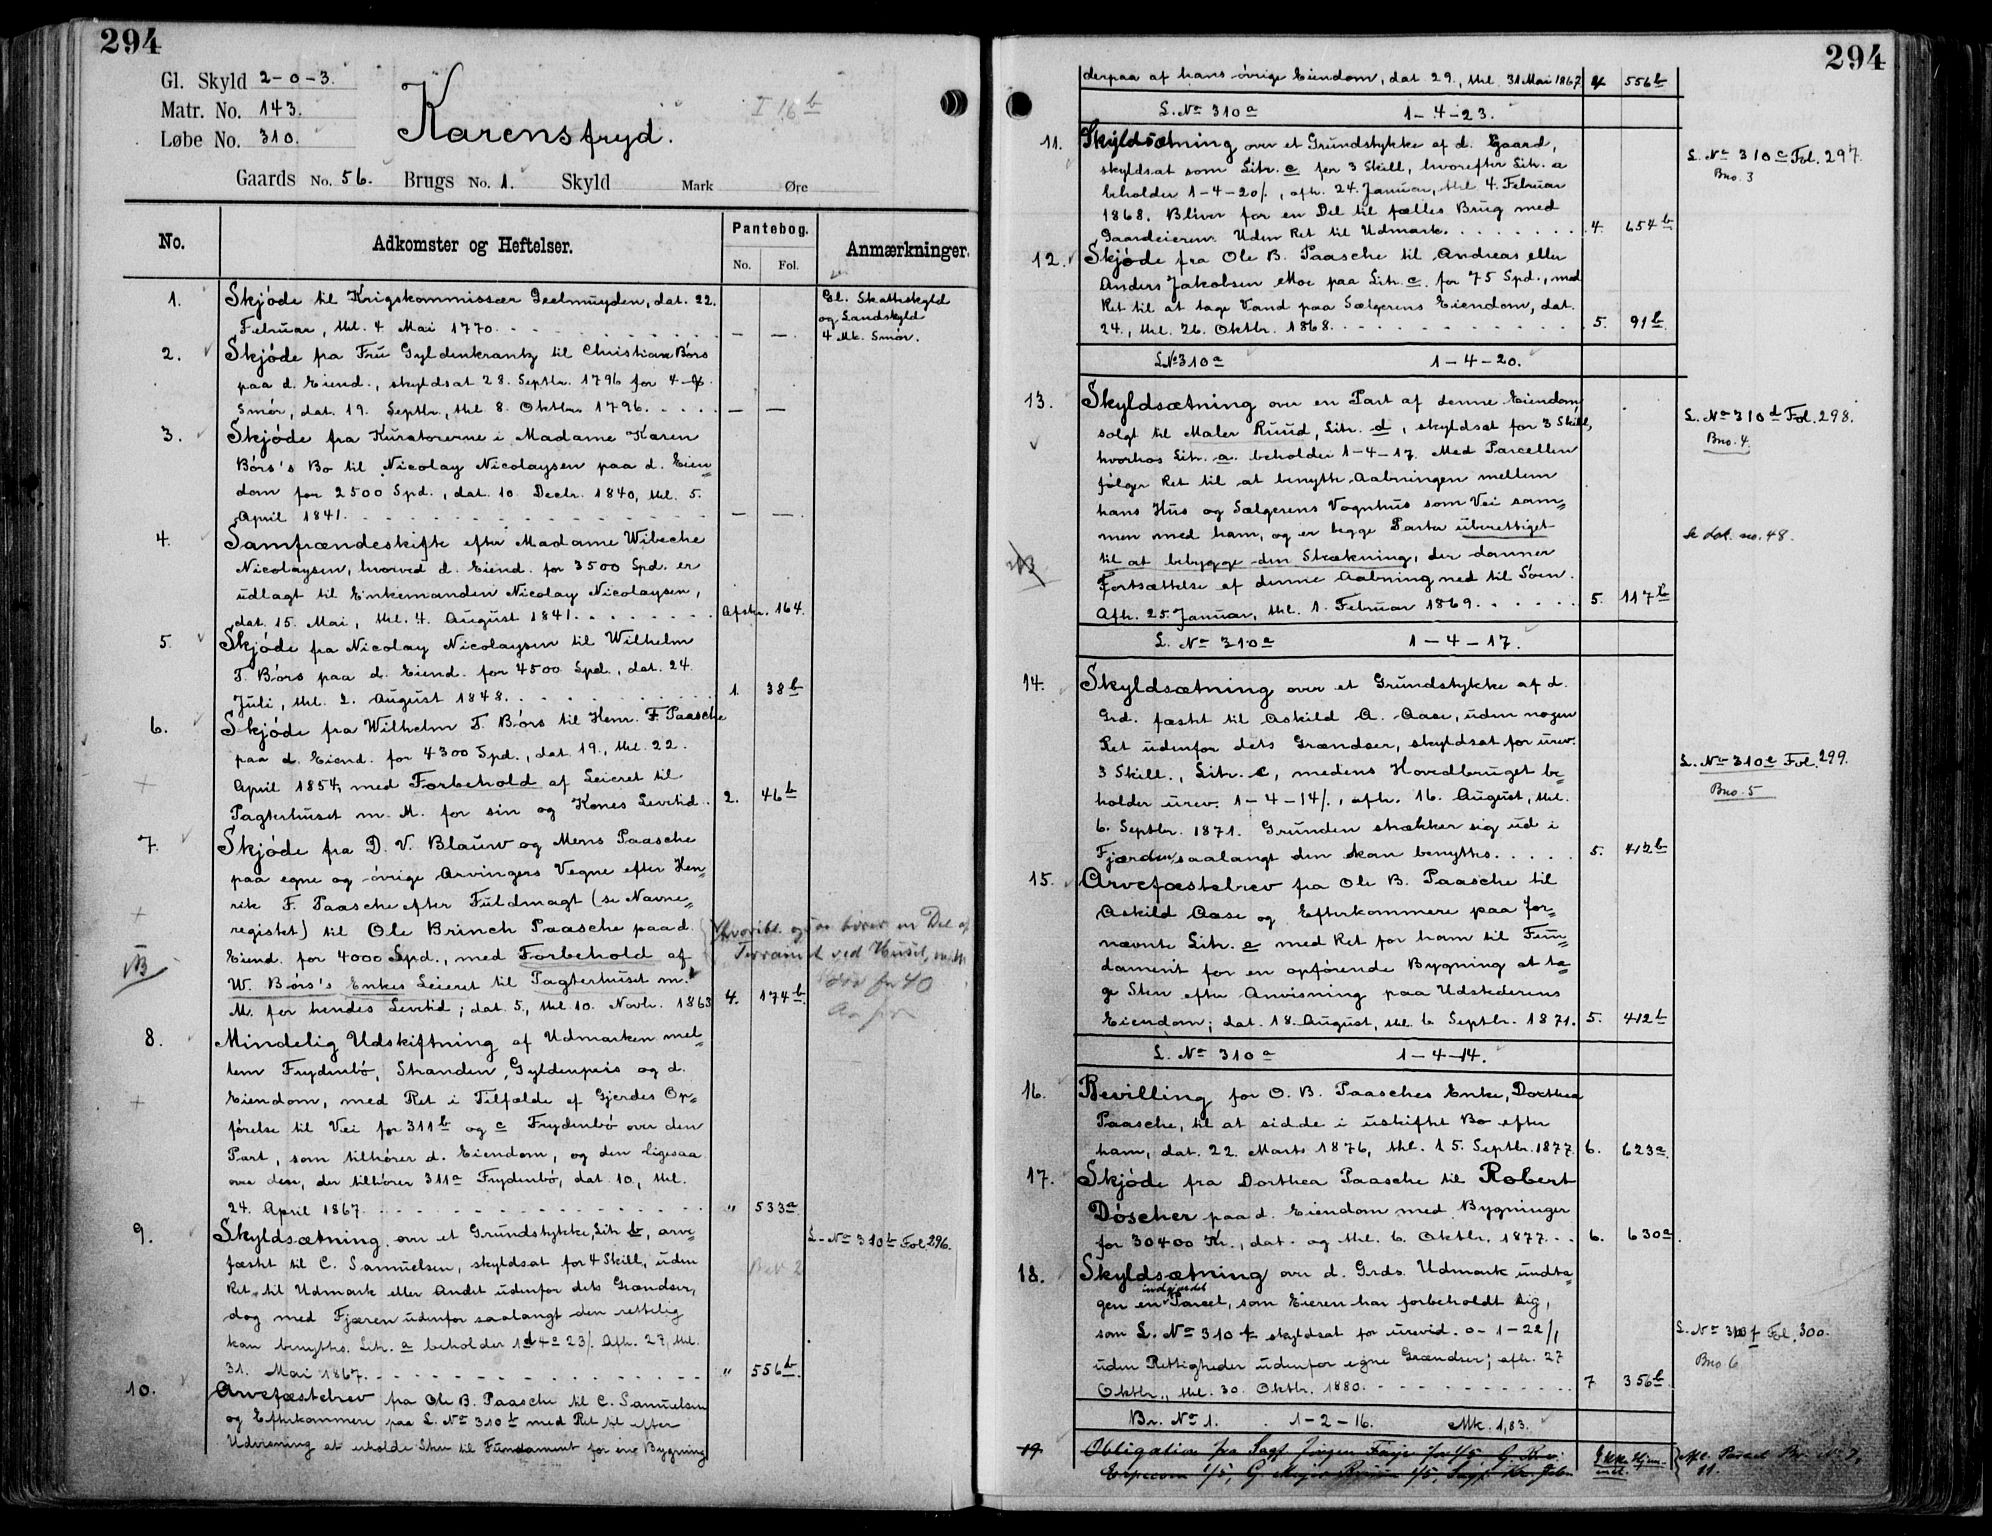 294
Gl. Skyld 2-0-3.
Matr. No. 143.
Løbe No. 310.
Karensfryd.
I 16 b
Gaards No. 56. Brugs No. 1. Skyld Mark Øre
No. Adkomster og Heftelser. Pantebog. Anmærkninger.
No. Fol.
1. Skjøde til Krigskommissær Geelmuyden, dat. 22.
Februar, thl. 4 Mai 1770. — —
Gl. Skatteskyld
og Landskyld
4 Mk. Smør.
2. Skjøde fra Frú Gyldenkrantz til Christian Børs
paa d. Eiend., skyldsat 28. Septbr. 1796 for 4
Smør, dat. 19. Septbr., thl. 8. Oktbr. 1796. — —
3. Skjøde fra Kuratorerne i Madame Karen
Børs's Bo til Nicolay Nicolaysen paa d. Eien=
dom for 2500 Spd., dat. 10. Decbr. 1840, thl. 5.
April 1841. — —
4. Samfrændeskifte efter Madame Wibeche
Nicolaysen, hvorved d. Eiend. for 3500 Spd. er
udlagt til Enkemanden Nicolay Nicolaysen,
dat. 15. Mai, thl. 4. August 1841. Afskr. 164.
5. Skjøde fra Nicolay Nicolaysen til Wilhelm
T. Børs paa d. Eiend. for 4500 Spd., dat. 24.
Juli, thl. 2. August 1848. 1. 38 b
6. Skjøde fra Wilhelm T. Børs til Henr. F. Paasche
paa d. Eiend. for 4300 Spd., dat. 19., thl. 22.
April 1854, med Forbehold af Leieret til
Pagterhuset m. M. for sin og Kones Levetid. 2. 46 b
7. Skjøde fra D. V. Blauw og Mens Paasche
paa egne og øvrige Arvingers Vegne efter Hen=
rik F. Paasche efter Fuldmagt (se Navne=
registet) til Ole Brinch Paasche paa d.
Eiend. for 4000 Spd., med Forbehold af
W. Børs's Enkes Leieret til Pagterhuset m.
M. for hendes Levetid; dat. 5., thl. 10. Novbr. 1863 4. 174 b
NB
8. Mindelig Udskiftning af Udmarken mel=
lem Frydenbø, Stranden, Gyldenpris og d.
Eiendom, med Ret i Tilfælde af Gjerdes Op=
førelse til Vei for 311 b og c Frydenbø over den
Part, som tilhører d. Eiendom, og den ligesaa
over den, der tilhører 311a Frydenbø, dat. 10., thl.
24. April 1867. " 533 a
9. Skyldsætning over et Grundstykke, Litr. b, arve=
fæstet til C. Samuelsen, skyldsat for 4 Skill, uden
Ret til Udmark eller Andet udenfor dets Grændser,
dog med Fjæren udenfor saalangt den rettelig
kan benyttes. Litr. a beholder 1d 4o 23/. Afh. 27., thl.
31. Mai 1867. " 556 b
L. No 310 b Fol. 296.
10. Arvefæstebrev fra Ole B. Paasche til C. Samuelsen
og Efterkommere paa L. No 310 b med Ret til efter
Udvisning at erholde Sten til Fundament for sine Bygning
294
derpaa af hans øvrige Eiendom, dat 29., thl. 31 Mai 1867 4 556 b
L. No 310 a 1-4-23.
11. Skyldsætning over et Grundstykke af d. Gaard,
skyldsat som Litr. c for 3 Skill, hvorefter Litr. a
beholder 1-4-20/., afh. 24. Januar, thl 4. Februar
1868. Bliver for en Del til fælles Brug med
Gaardeieren. Uden Ret til Udmark. 4. 654 b
L. No 310 c Fol. 297.
Bno. 3
12. Skjøde fra Ole B. Paasche til Andreas eller
Anders Jakobsen Moe paa Litr. c for 75 Spd., med
Ret til at tage Vand paa Sælgerens Eiendom, dat.
24., thl. 26. Oktbr. 1868. 5. 91 b
L No 310 a 1-4-20.
13. Skyldsætning over en Part af denne Eiendom,
solgt til Maler Ruud, Litr. d, skyldsat for 3 Skill,
hvorhos Litr. a. beholder 1-4-17. Med Parcellen
følger Ret til at benytte Aabningen mellem
hans Hus og Sælgerens Vognhus som Vei sam=
men med ham, og er begge Parter uberettiget
til at bebygge den Strækning, der danner
Fortsættelse af denne Aabning ned til Søen.
Afh. 25. Januar, thl. 1. Februar 1869. 5. 117 b
L. No 310 d Fol. 298.
Bno. 4.
Se dok. no. 48.
NB
L. No 310 a 1-4-17.
14. Skyldsætning over et Grundstykke af d.
Grd. fæstet til Askild A. Aase, uden nogen
Ret udenfor dets Grændser, skyldsat for urev.
3 Skill., Litr. e, medens Hovedbruget be=
holder urev. 1-4-14/., afh. 16. August, thl.
6. Septbr. 1871. Grunden strækker sig ud i
Fjærden saalangt den kan benyttes. 5. 412 b
L. No 310 e Fol. 299.
Bno. 5
15. Arvefæstebrev fra Ole B. Paasche til
Askild Aase og Efterkommere paa for=
nævnte Litr. e med Ret for ham til Fun=
dament for en opførende Bygning at ta=
ge Sten efter Anvisning paa Udstederens
Eiendom; dat. 18 August, thl. 6 Septbr. 1871. 5. 412 b
L. No 310 a 1-4-14.
16. Bevilling for O. B. Paasches Enke, Dorthea
Paasche, til at sidde i uskiftet Bo efter
ham, dat. 22. Marts 1876, thl. 15. Septbr. 1877. 6. 623 a.
17. Skjøde fra Dorthea Paasche til Robert
Døscher paa d. Eiendom med Bygninger
for 30400 Kr., dat. og thl. 6. Oktbr. 1877. 6. 630 a.
18. Skyldsætning over d. Grds. Udmark undta=
gen en indgjerdet Parcel, som Eieren har forbeholdt sig,
som L. No 310 f skyldsat for urevid. 0-1-22/,
uden Rettigheder udenfor egne Grændser; afh. 27
Oktbr., thl. 30. Oktbr. 1880. 7 356 b.
L. No 310 f Fol. 300.
Bno 6
Br. No 1. 1-2-16. Mk. 1,83.
19 Obligation fra Sagf. Jørgen